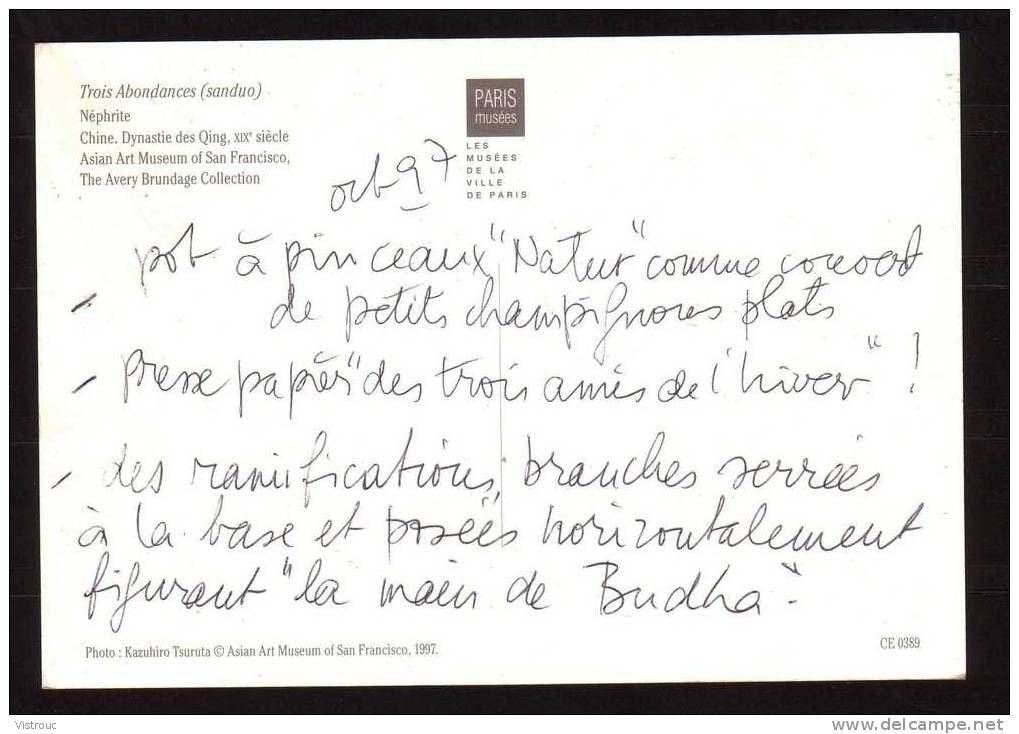 Trois Abondances (sanduo)
Néphrite
Chine. Dynastie des Qing, XIXe siècle
Asian Art Museum of San Francisco,
The Avery Brundage Collection
PARIS
musées
LES
MUSÉES
DE LA
VILLE
DE PARIS
oct 97
pot à pinceaux "Natur" comme
- de petits champignons plats
- presse papiers "des trois amis de l'hiver" !
- des ramifications, branches serrées
à la base et posées horizontalement
figurant "la main de Budha" -
Photo : Kazuhiro Tsuruta © Asian Art Museum of San Francisco, 1997.
CE 0389
Vistrouc
www.delcampe.net